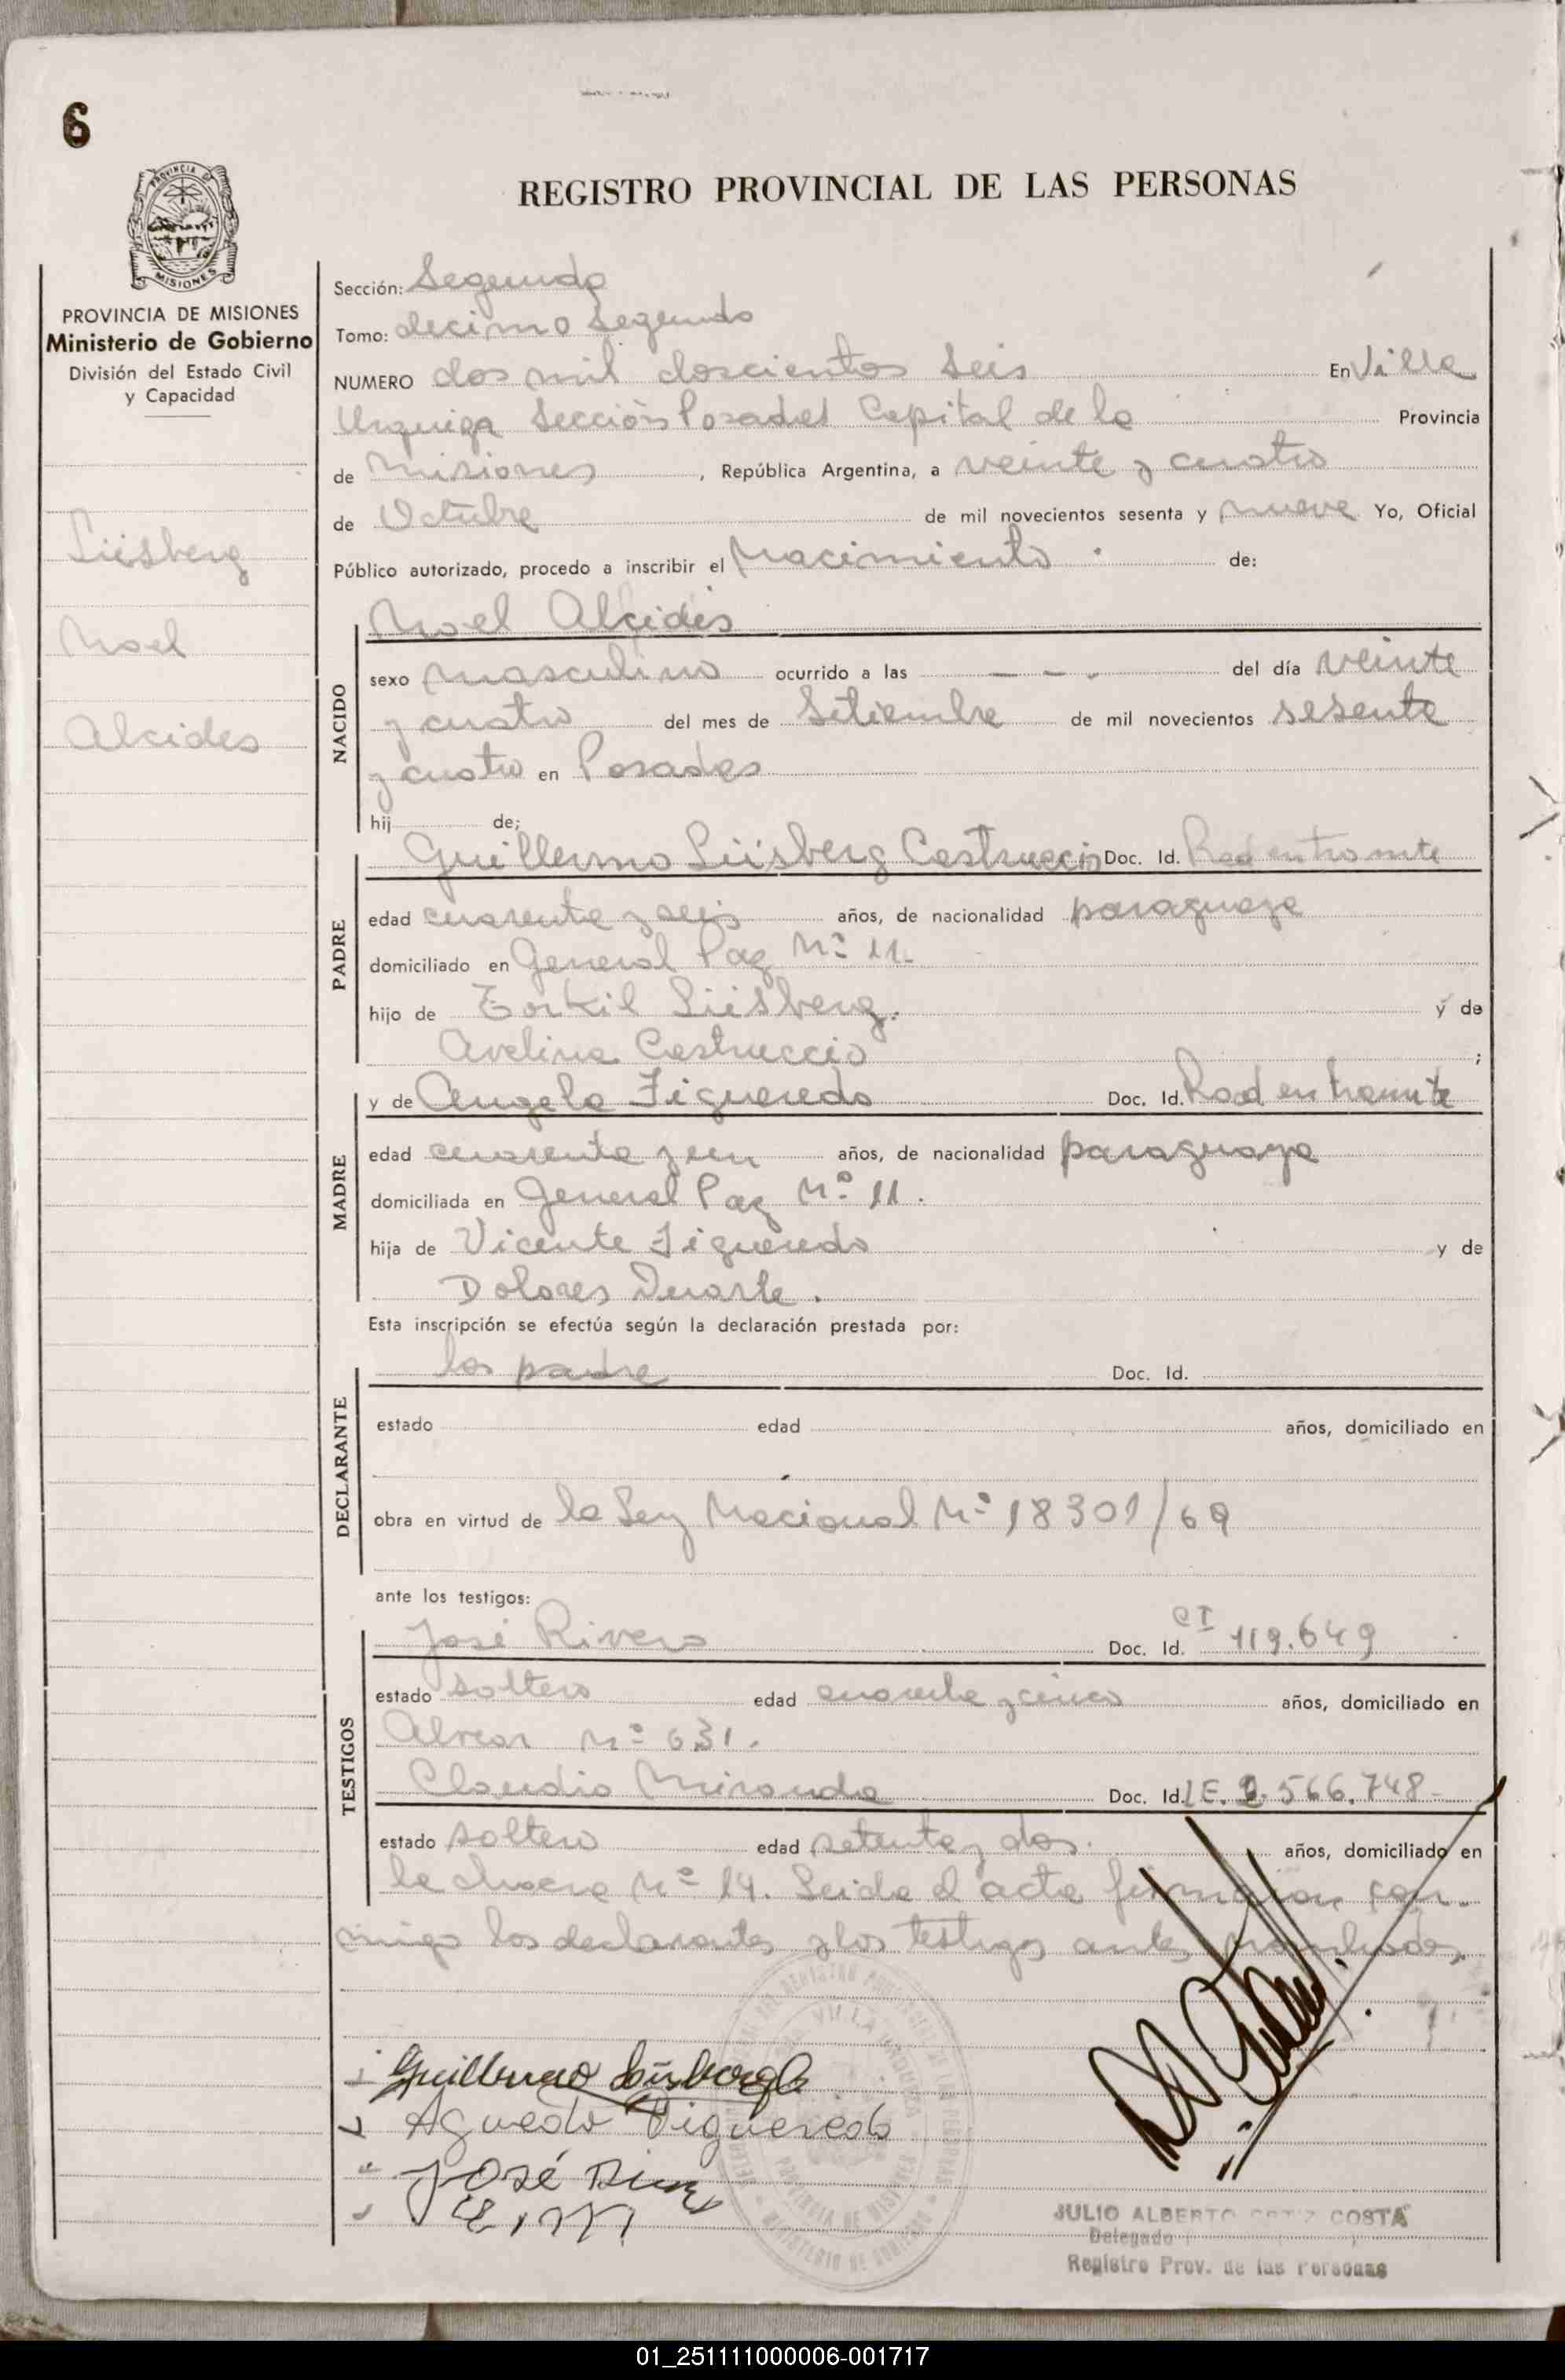 6
REGISTRO PROVINCIAL DE LAS PERSONAS
PROVINCIA DE MISIONES
Ministerio de Gobierno
División del Estado Civil
y Capacidad
Liisberg
Noel
Alcides
Sección: Segunda
Tomo: decimo segundo
NUMERO dos mil doscientos seis En Villa
Urquiza Sección Posadas Capital de la Provincia
de Misiones, República Argentina, a veinte y cuatro
de Octubre de mil novecientos sesenta y nueve Yo, Oficial
Público autorizado, procedo a inscribir el Nacimiento de:
NACIDO
Noel Alcides
sexo masculino ocurrido a las — - . del día veinte
y cuatro del mes de Setiembre de mil novecientos sesenta
y cuatro en Posadas
hij de;
PADRE
Guillermo Liisberg Castruccio Doc. Id. Rad en tramite
edad cuarenta y seis años, de nacionalidad paraguaya
domiciliado en General Paz Nº 11.
hijo de Torkil Liisberg. y de
Avelina Castruccio ;
MADRE
y de Angela Figueredo Doc. Id. Rad en tramite
edad cuarenta y un años, de nacionalidad paraguaya
domiciliada en General Paz Nº 11.
hija de Vicente Figueredo y de
Dolores Duarte.
Esta inscripción se efectúa según la declaración prestada por:
DECLARANTE
los padre Doc. Id.
estado edad años, domiciliado en
obra en virtud de la Ley Nacional Nº 18301/69
ante los testigos:
TESTIGOS
José Rivero Doc. Id. CI 119.649
estado soltero edad cuarenta y cinco años, domiciliado en
Alvear Nº 631.
Claudio Miranda Doc. Id. LE. 2.566.748-
estado soltero edad setenta y dos. años, domiciliado en
la chacra Nº 14. Leida el acta firmaron con-
migo los declarantes y los testigos antes nombrados,
Guillermo Liisberg C
Aguedo Figueredo
José
VILLA URQUIZA
PROVINCIA DE MISIONES
MINISTERIO DE GOBIERNO
JULIO ALBERTO ORTIZ COSTA
Delegado
Registro Prov. de las Personas
01_251111000006-001717